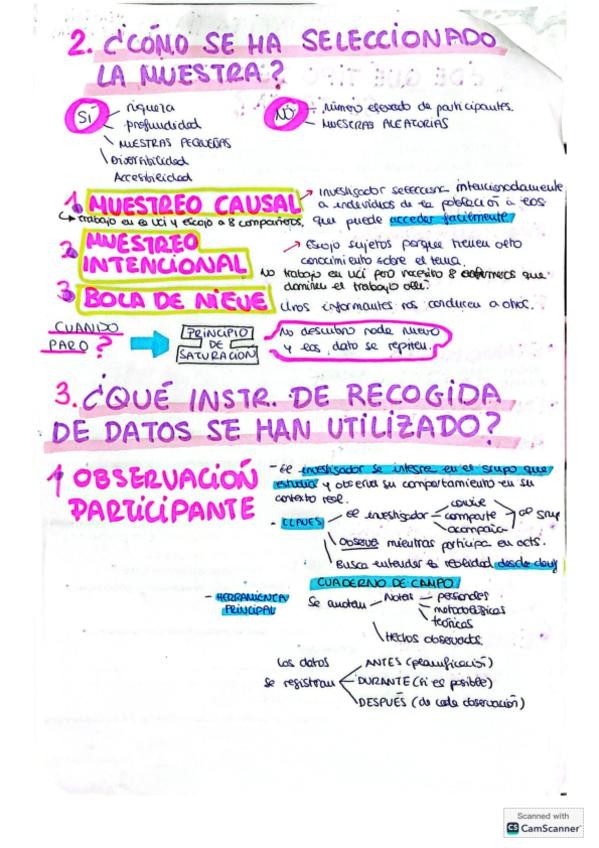 2. ¿CÓMO SE HA SELECCIONADO
LA MUESTRA?
SÍ
riqueza
profundidad
MUESTRAS PEQUEÑAS
Diversibilidad
Accesibilidad
NO
Número elevado de participantes.
MUESTRAS ALEATORIAS
1. MUESTREO CAUSAL
Investigador selecciona intencionadamente
a individuos de la población a los
que puede acceder facilmente.
trabajo en la UCI y escojo a 8 compañeros,
2. MUESTREO
INTENCIONAL
Escojo sujetos porque tienen cierto
conocimiento sobre el tema.
No trabajo en UCI pero necesito 8 enfermeros que
dominen el trabajo allí.
3. BOLA DE NIEVE
Unos informantes nos conducen a otros.
CUANDO
PARO?
PRINCIPIO
DE
SATURACIÓN
No descubro nada nuevo
y los dato se repiten.
3. ¿QUÉ INSTR. DE RECOGIDA
DE DATOS SE HAN UTILIZADO?
1 OBSERVACIÓN
PARTICIPANTE
- El investigador se integra en el grupo que
estudia y observa su comportamiento en su
contexto real.
- CLAVES
el investigador
convive
comparte
acompaña
Observa mientras participa en acts.
Busca entender la realidad desde
CUADERNO DE CAMPO
- HERRAMIENTA
PRINCIPAL
Se anotan
Notas
personales
metodológicas
teóricas
Hechos observados.
Los datos
se registran
ANTES (planificación)
DURANTE (si es posible)
DESPUÉS (de cada observación)
Scanned with
CS CamScanner